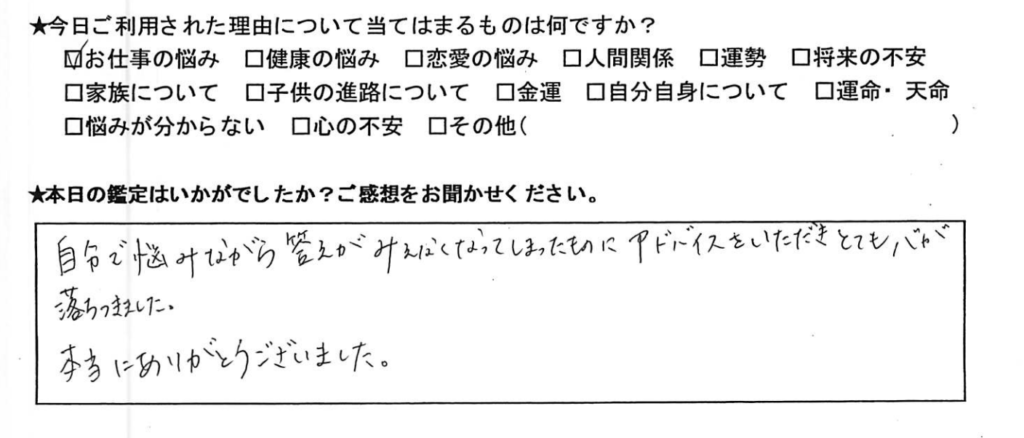 ★今日ご利用された理由について当てはまるものは何ですか？
☑お仕事の悩み □健康の悩み □恋愛の悩み □人間関係 □運勢 □将来の不安
□家族について □子供の進路について □金運 □自分自身について □運命・天命
□悩みが分からない □心の不安 □その他( )
★本日の鑑定はいかがでしたか？ご感想をお聞かせください。
自分で悩みながら答えがみえなくなってしまったものにアドバイスをいただきとても心が
落ちつきました。
本当にありがとうございました。